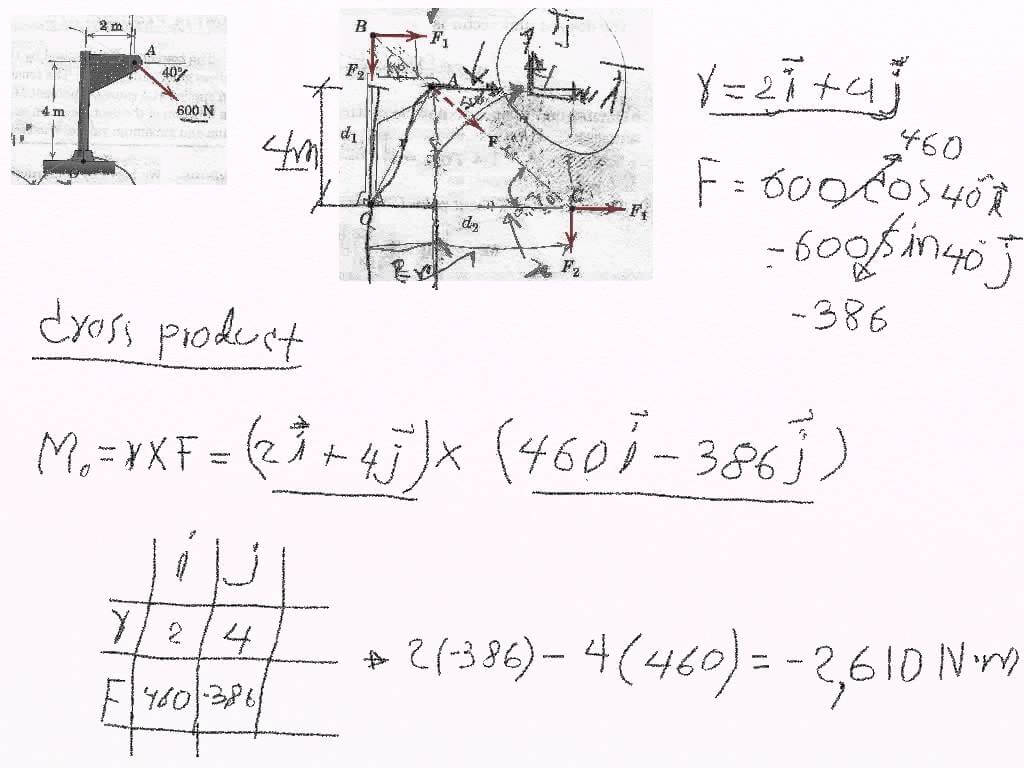 2 m
A
40°
600 N
4 m
B
F₁
F₂
A
j
i
4m
d₁
r
F
O
d₂
C
F₁
F₂
r = 2i + 4j
460
F = 600 cos 40° i
-600 sin 40° j
-386
cross product
M₀ = r X F = (2i + 4j) x (460i - 386j)
i j
r 2 4
F 460 -386
→ 2(-386) - 4(460) = -2,610 N·m